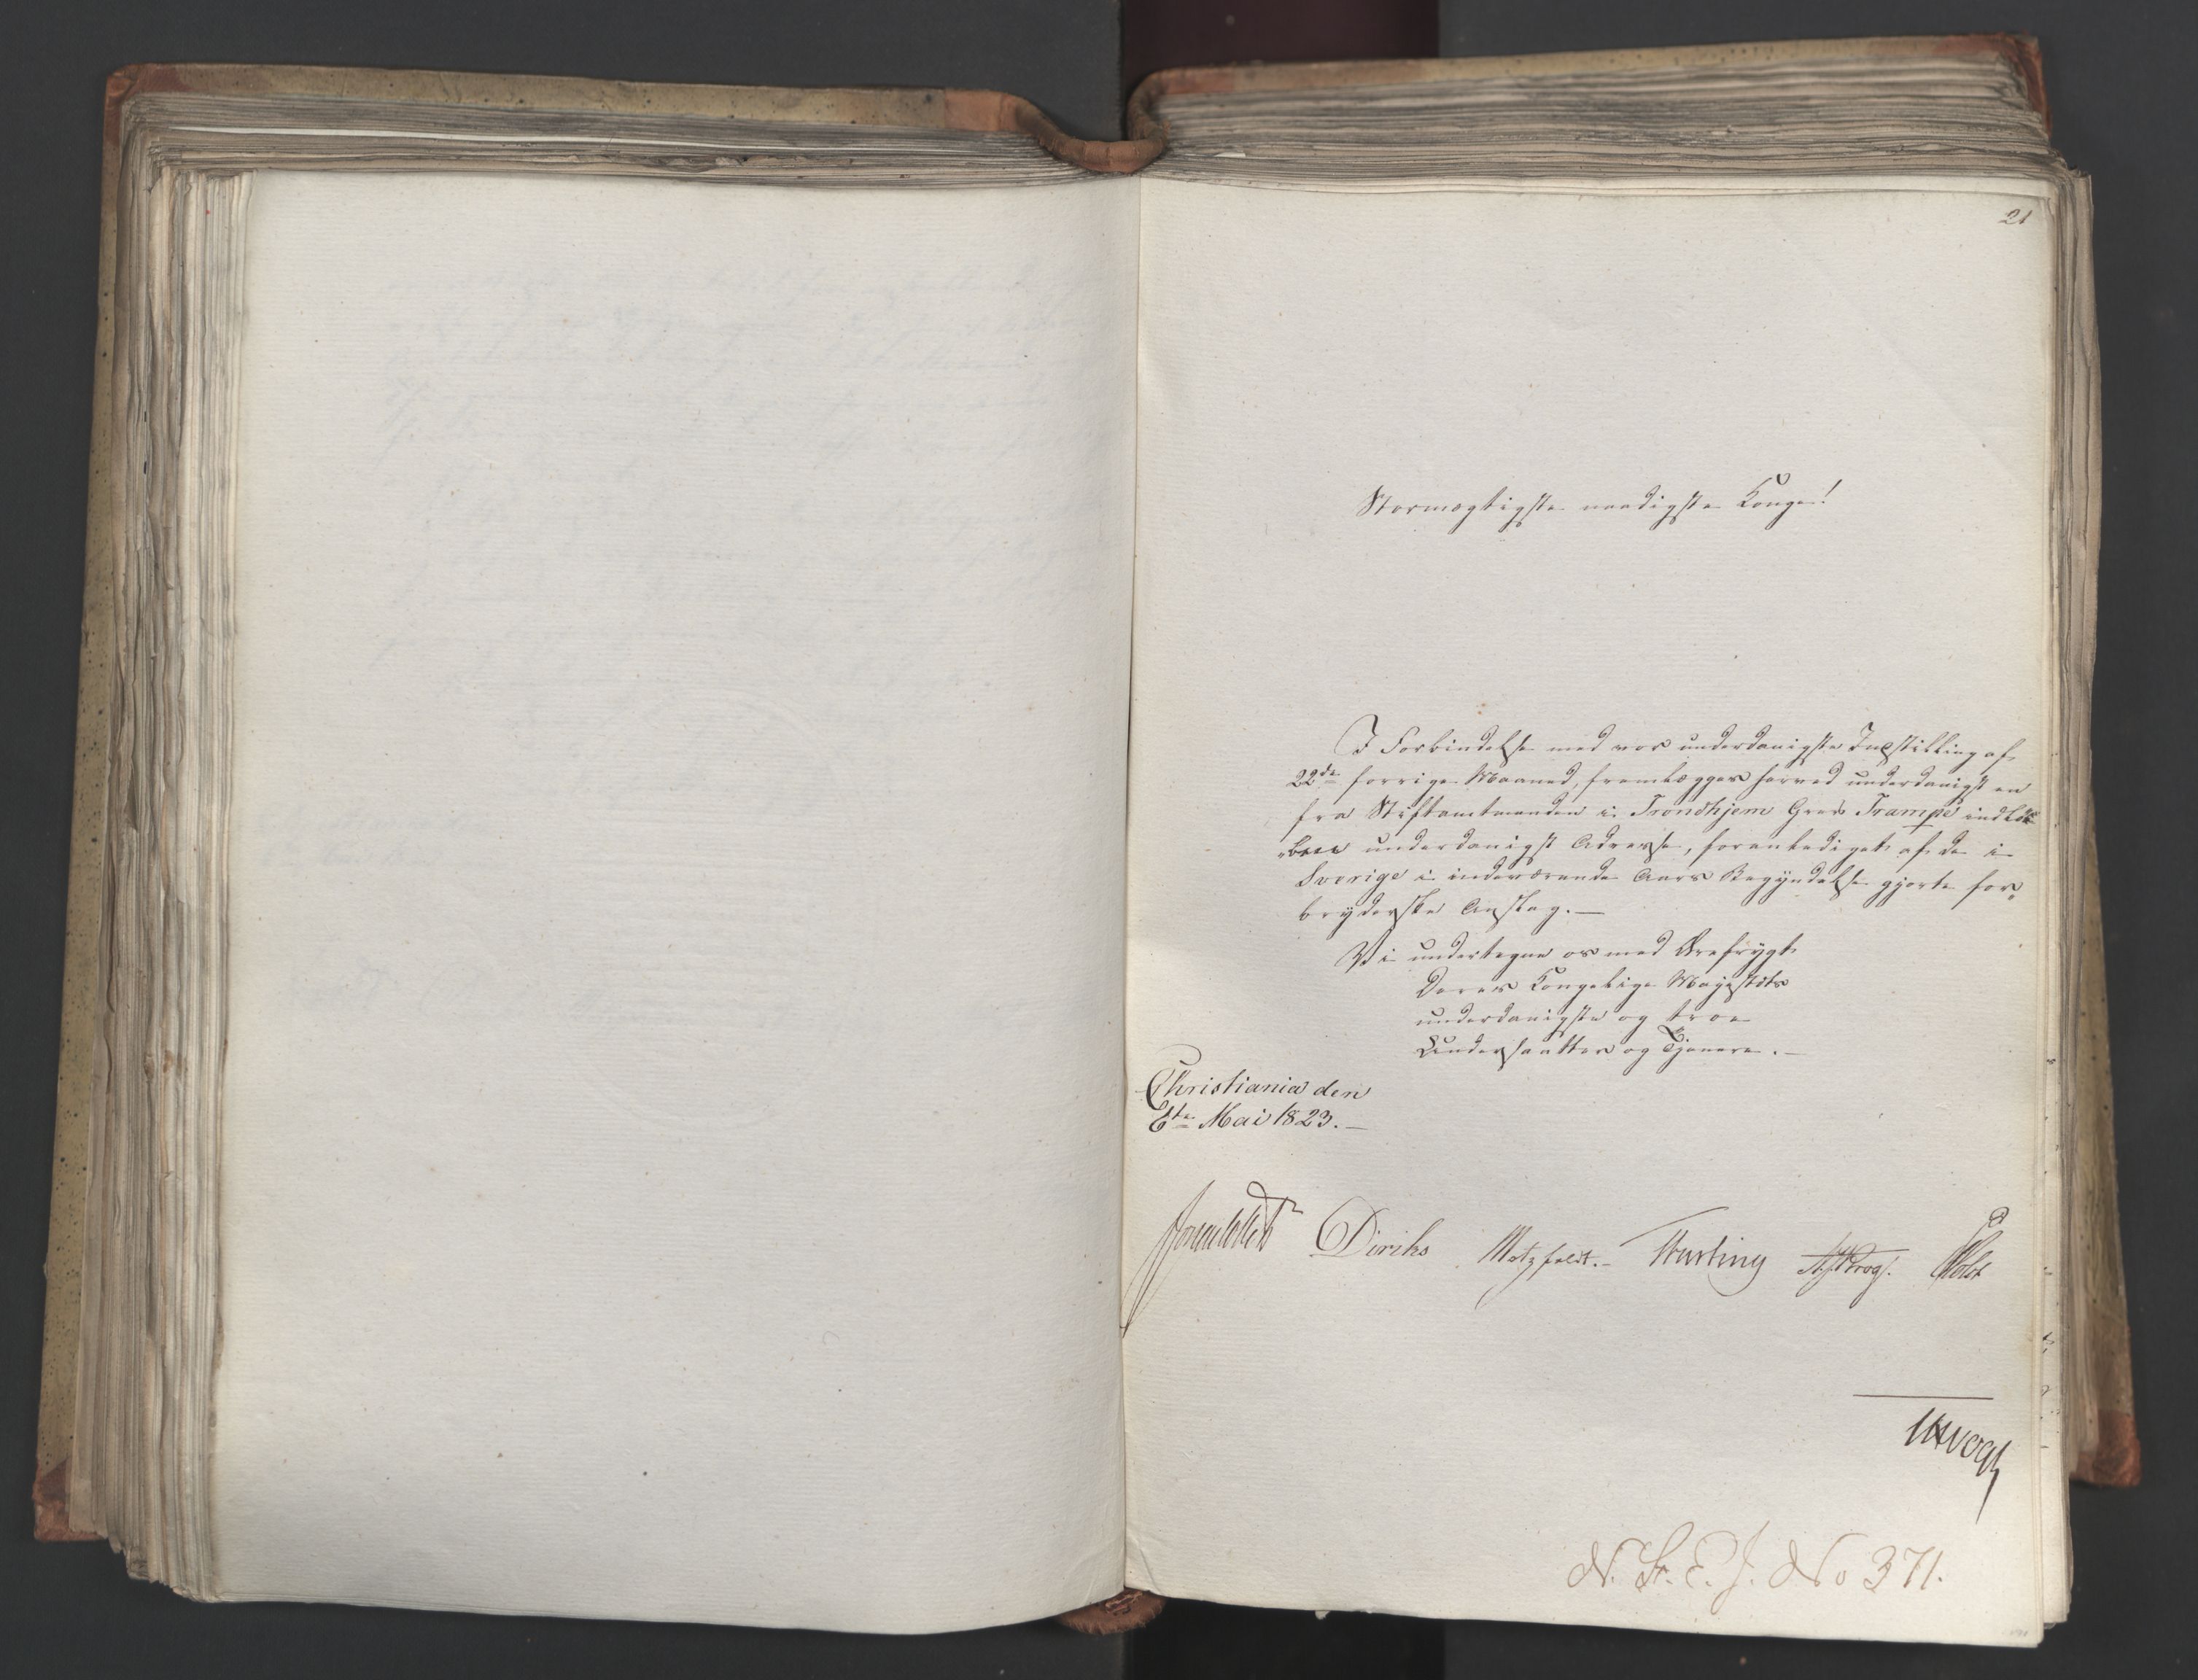 21
Stormægtigste naadigste Konge!
I Forbindelse med vor underdanigste Indstilling af
22de forrige Maaned, fremlægges herved underdanigst en
fra Stiftamtmanden i Trondhjem Grev Trampe indkom
„men underdanigst Adresse, foranlediget af de i
Sverige i indeværende Aars Begyndelse gjorte for„
bryderske Anslag.—
Vi undertegne os med Ærefrygt
Deres Kongelige Majestæts
underdanigste og troe
Undersaatter og Tjenere.—
Christiania den
6te Mai 1823.—
Sommerhielm Diriks Motzfeldt.— Krog. Holst
Vogt
N. St. E. J. No 371.